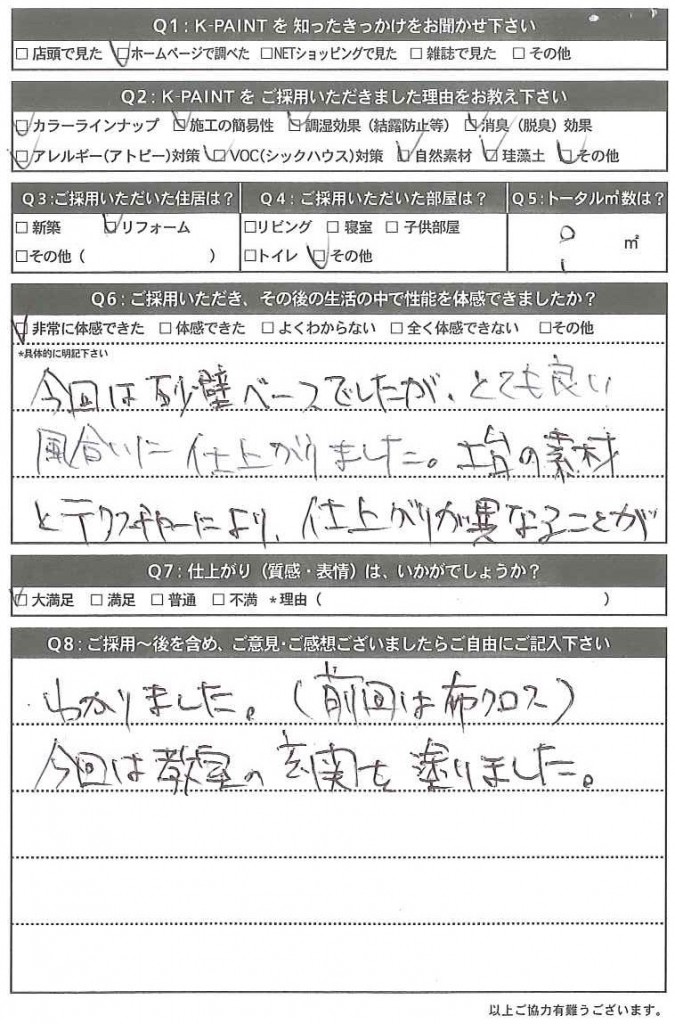 Q1：K-PAINTを 知ったきっかけをお聞かせ下さい
□ 店頭で見た ☑ホームページで調べた □NETショッピングで見た □ 雑誌で見た □ その他
Q2：K-PAINTを ご採用いただきました理由をお教え下さい
☑カラーラインナップ ☑施工の簡易性 ☑調湿効果（結露防止等） ☑消臭（脱臭）効果
☑アレルギー(アトピー)対策 ☑VOC(シックハウス)対策 ☑自然素材 ☑珪藻土 ☑その他
Q3：ご採用いただいた住居は？ Q4：ご採用いただいた部屋は？ Q5：トータル㎡数は？
□ 新築 ☑リフォーム □リビング □ 寝室 □ 子供部屋 ㎡
□その他（ ） □トイレ ☑その他
Q6：ご採用いただき、その後の生活の中で性能を体感できましたか？
☑非常に体感できた □ 体感できた □ よくわからない □ 全く体感できない □その他
*具体的に明記下さい
今回は砂壁ベースでしたが、とても良い
風合いに仕上がりました。の素材
とテクスチャーにより、仕上がりが異なることが
Q7：仕上がり（質感・表情）は、いかがでしょうか？
☑大満足 □ 満足 □ 普通 □ 不満 *理由（ ）
Q8：ご採用～後を含め、ご意見・ご感想ございましたらご自由にご記入下さい
わかりました。（前回は布クロス）
今回は教室の玄関を塗りました。
以上ご協力有難うございます。